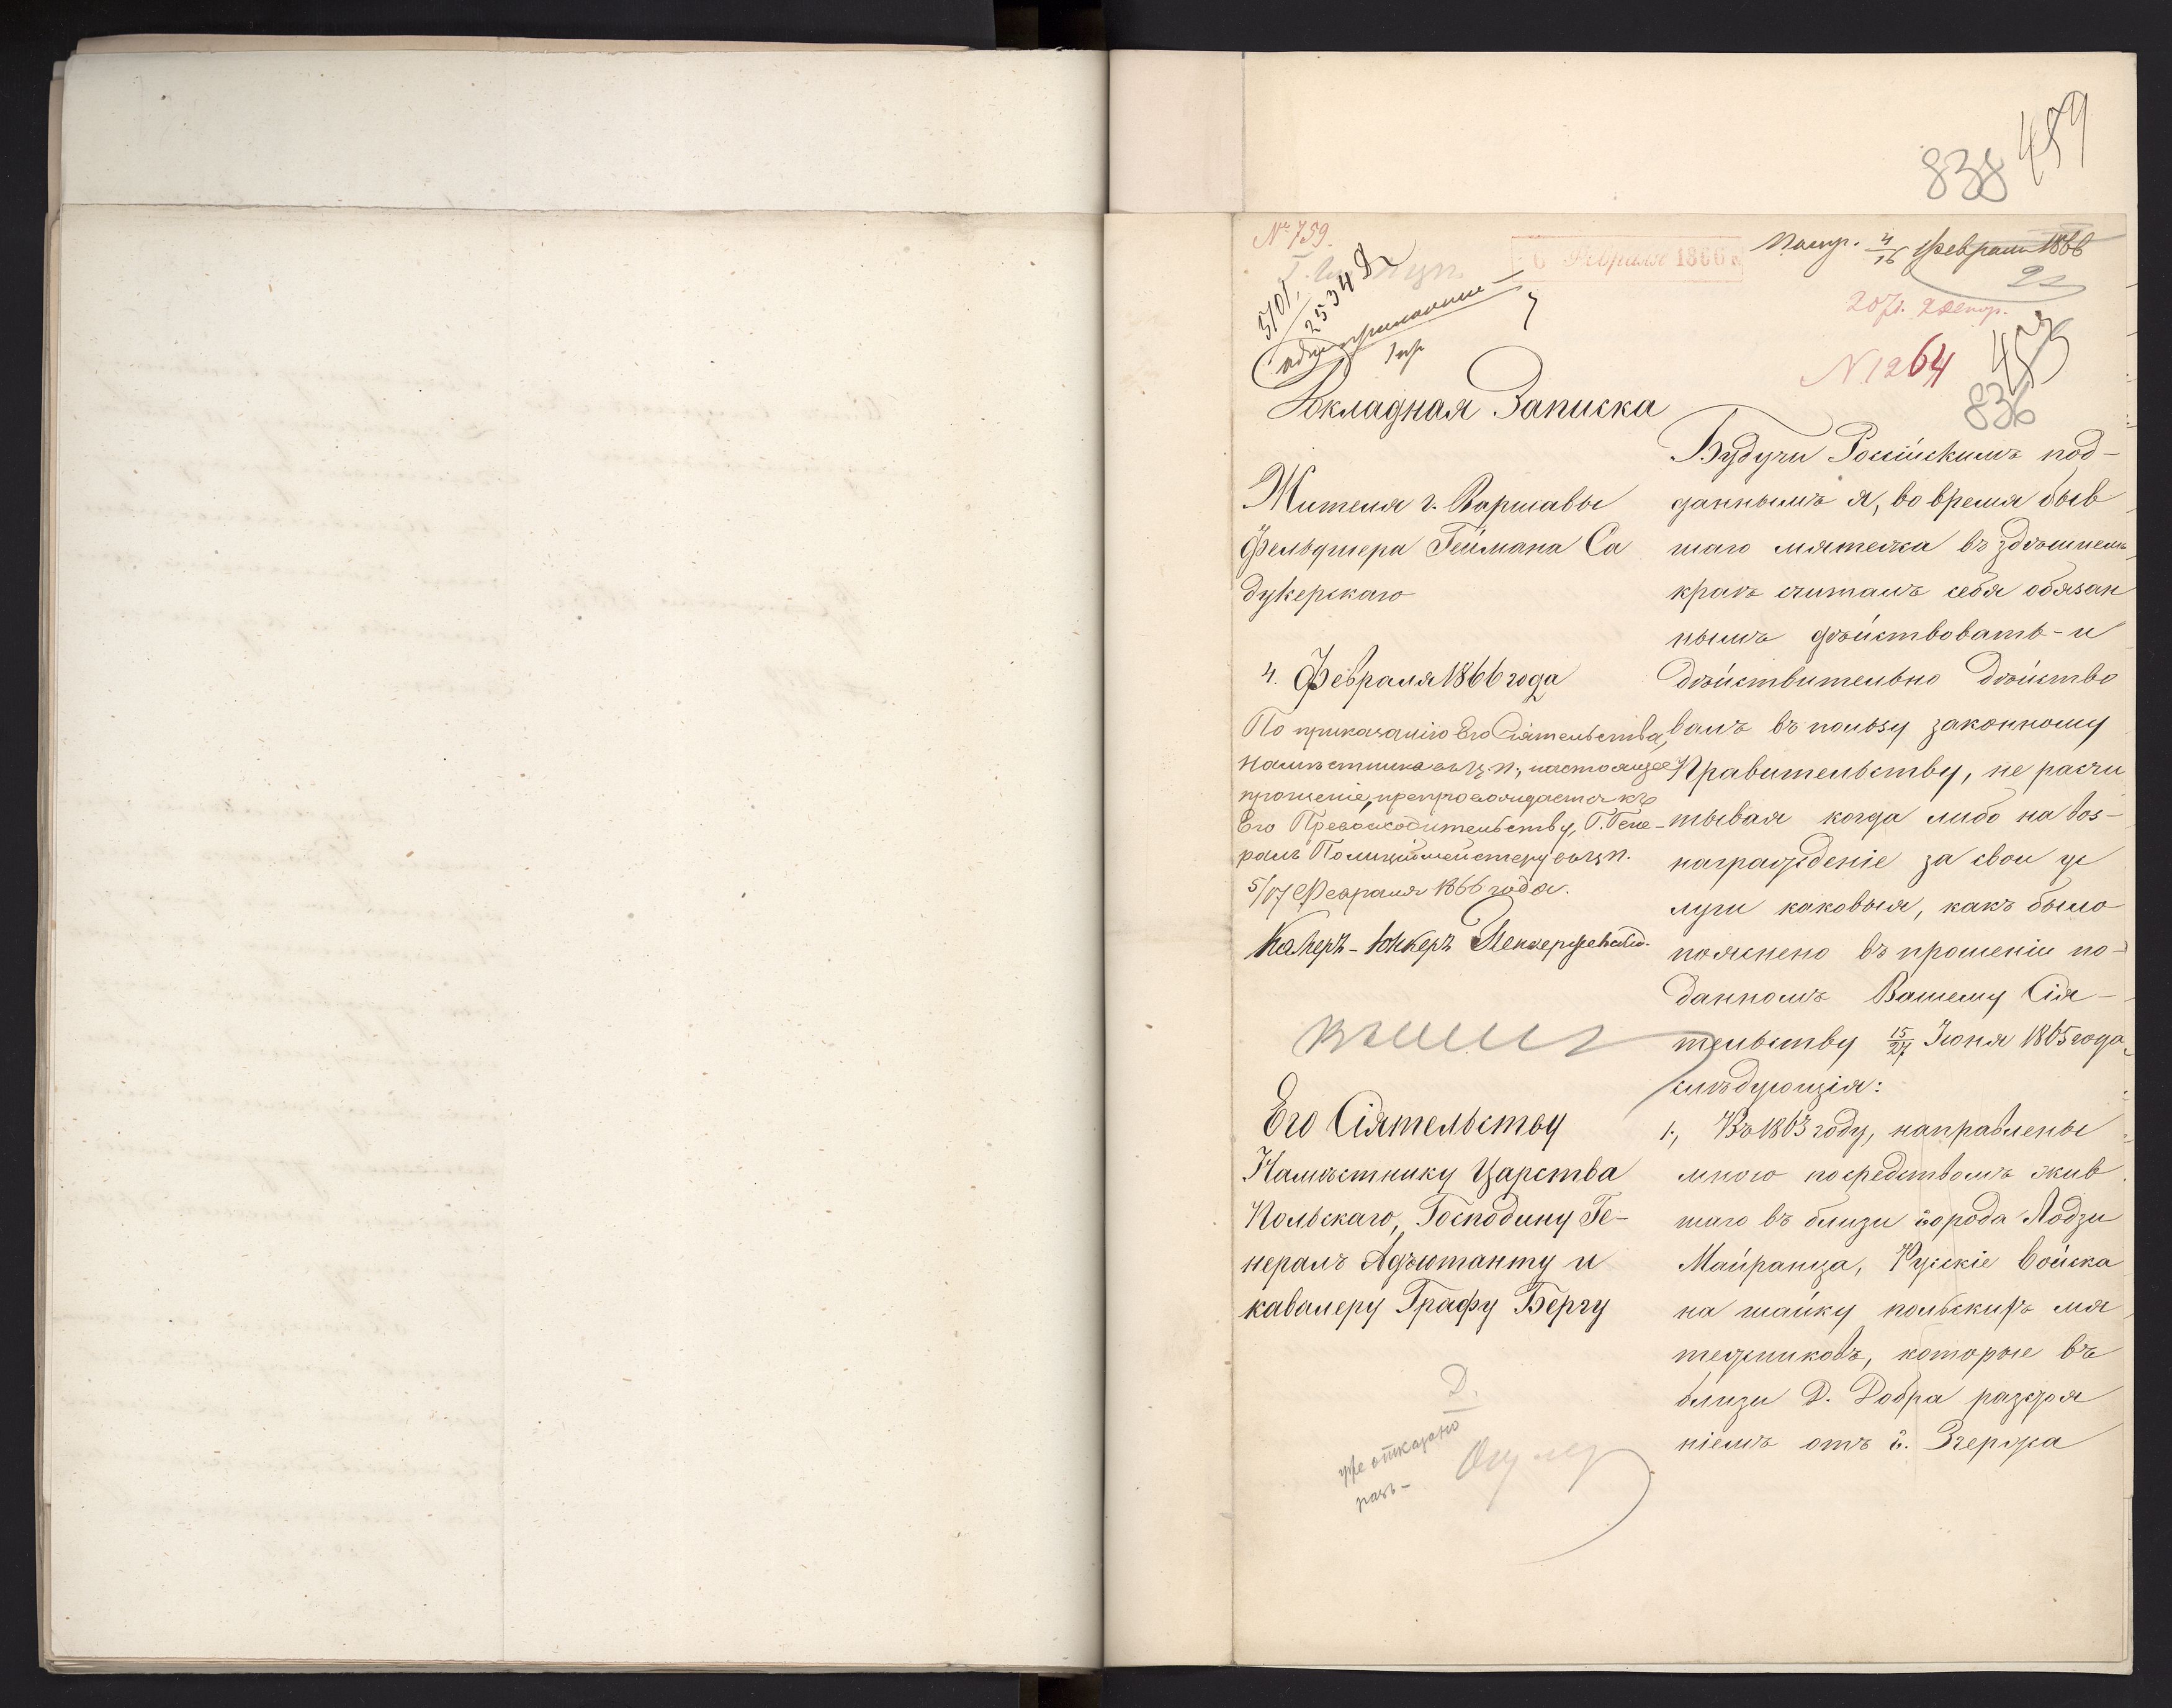 838 459
№ 759.
6 Февраля 1866
4/16 Февраля 1866
22
5101/2534 Д
N 1264
453
836
Докладная Записка
Жителя г. Варшавы
Фельдшера Геймана Са
дукерскаго
4. Февраля 1866 года
По приказанію Его Сіятельства,
Намѣстника въ Ц. П., настоящее
прошеніе, препровождается къ
Его Превосходительству, Г. Гене-
ралъ Полицiймейстеру въ Ц. П.
5/17 Февраля 1866 года.
Камеръ-Юнкеръ
Его Сіятельству
Намѣстнику Царства
Польскаго, Господину Ге-
нералъ Адъютанту и
кавалеру Графу Бергу
Д.
уже отказано
разъ-
Будучи Россійскимъ под-
даннымъ я, во время быв
шаго мятежа въ здѣшнемъ
краѣ считалъ себя обязан
нымъ дѣйствовать - и
дѣйствительно дѣйство
валъ въ пользу законному
Правительству, не расчи
тывая когда либо на воз-
награжденіе за свои ус
луги каковыя, какъ было
пояснено въ прошеніи по-
данномъ Вашему Сія-
тельству 15/27 Іюня 1865 года
слѣдующія:
1., Въ 1863 году, направлены
мною посредствомъ жив
шаго въ близи города Лодзи
Майранца, Рускіе войска
на шайку польскихъ мя
тежниковъ, которые въ
близи Д. Добра разстоя
ніемъ отъ г. Згержа